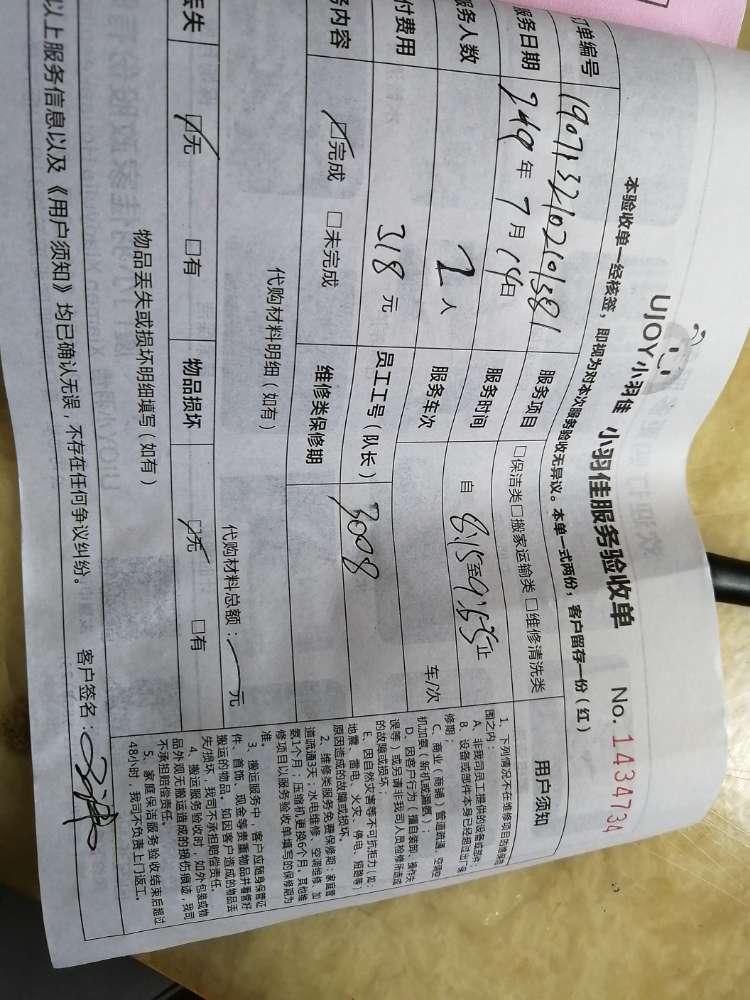 UJOY小羽佳 小羽佳服务验收单 No. 1434734
本验收单一经核签，即视为对本次服务验收无异议。本单一式两份，客户留存一份（红）
订单编号 服务项目 □保洁类□搬家运输类 □维修清洗类
服务日期 年 7 月 14 日 服务时间 自 8:15 至 9:55 止
服务人数 2 人 服务车次 车/次
付费用 318 元 员工工号（队长） 3008
务内容 ☑完成 □未完成 维修类保修期
代购材料明细（如有） 代购材料总额： 元
丢失 ☑无 □有 物品损坏 ☑无 □有
物品丢失或损坏明细填写（如有）
以上服务信息以及《用户须知》均已确认无误，不存在任何争议纠纷。 客户签名：
用户须知
1、下列情况不在维修项目的维保范
围之内：
A、非我司员工提供的设备或部件；
B、设备或部件本身已经超过出厂保
修期；
C、商业（商铺）管道疏通、空调空
机加氨（新机或漏氨）；
D、因客户行为（擅自装拆、操作失
误等）或另请非我司人员检修所造成
的故障或损坏；
E、因自然灾害等不可抗拒力（如：
地震、雷电、火灾、停电、短路等）
原因造成的故障或损坏。
2、维修类服务免费保修期：家庭管
道疏通3天；水电维修、空调维修、加
氨1个月；压缩机更换6个月。其他维
修项目以服务验收单填写的保修期为
准。
3、搬运服务中，客户应随身保管证
件、首饰、现金等贵重物品并看管好
搬运的物品，如因客户造成的物品丢
失/损坏，我司不承担赔偿责任。
4、搬运服务验收时，如外包装或物
品外观无搬运造成的损伤痕迹，我司
不承担赔偿责任。
5、家庭保洁服务验收结束后超过
48小时，我司不负责上门返工。